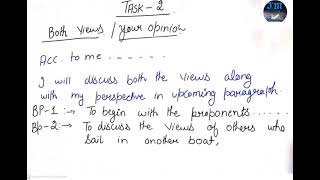 TASK-2
Both Views / Your opinion
Acc. to me ......
I will discuss both the views along
with my perspective in upcoming paragraph.
BP-1 :→ To begin with the proponents ......
BP-2 :→ To discuss the views of others who
Sail in another boat,